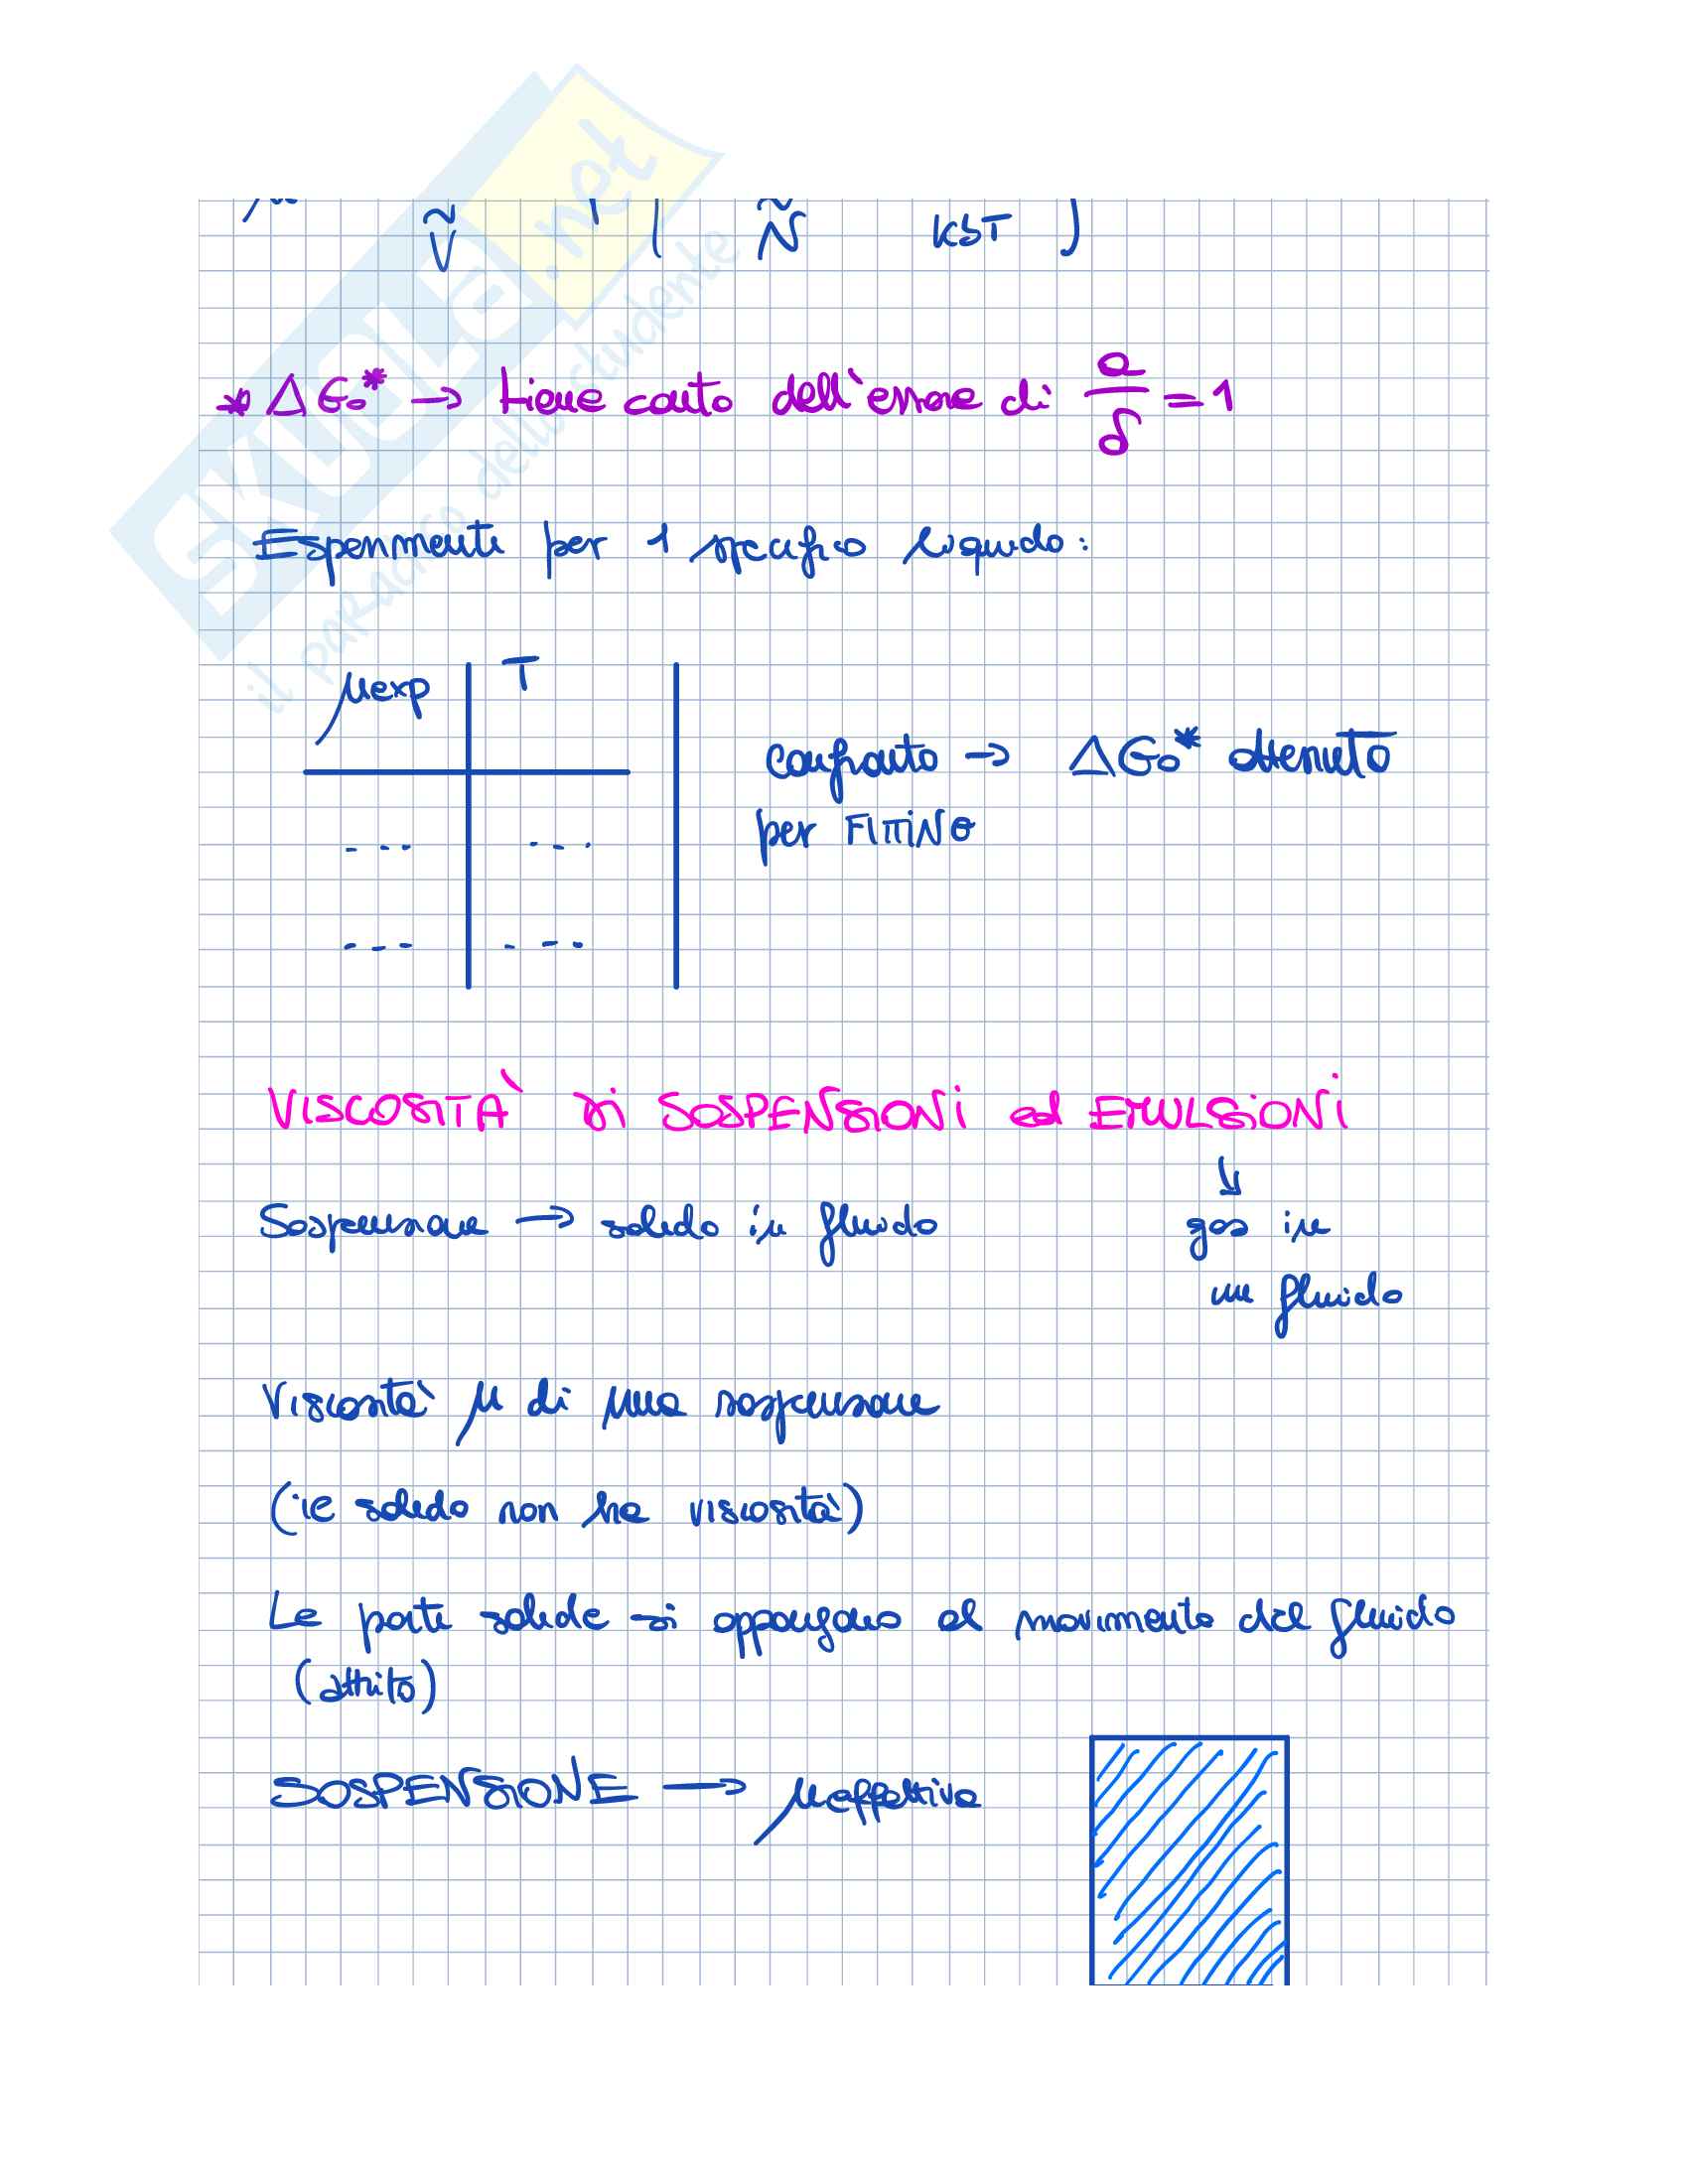 Ṽ Ñ KbT
* ΔG₀* → tiene conto dell'errore di a/δ = 1
Esperimenti per 1 specifico liquido:
μexp T
--- ---
--- ---
confronto → ΔG₀* ottenuto
per FITTING
VISCOSITÀ DI SOSPENSIONI ed EMULSIONI
Sospensione → solido in fluido
↓
gas in
un fluido
Viscosità μ di una sospensione
(il solido non ha viscosità)
Le parti solide si oppongono al movimento del fluido
(attrito)
SOSPENSIONE → μeffettiva
SKUOLA.net
il paradiso dello studente